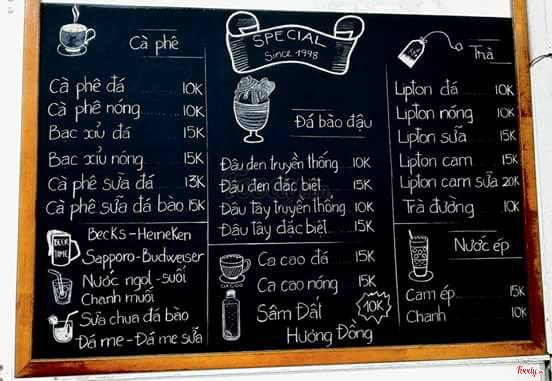 Cà phê
Cà phê đá 10K
Cà phê nóng 10K
Bạc xỉu đá 15K
Bạc xỉu nóng 15K
Cà phê sữa đá 13K
Cà phê sữa đá bào 15K
BEER TIME
Becks-Heineken
Sapporo-Budweiser
Nước ngọt-suối
Chanh muối
Sữa chua đá bào
Đá me-Đá me sữa
SPECIAL
Since 1998
Đá bào đậu
Đậu đen truyền thống 10K
Đậu đen đặc biệt 15K
Đậu tây truyền thống 10K
Đậu tây đặc biệt 15K
cacao
Ca cao đá 15K
Ca cao nóng 15K
Sâm Đất 10K
Hương Đồng
Trà
Lipton đá 10K
Lipton nóng 10K
Lipton sữa 15K
Lipton cam 15K
Lipton cam sữa 20K
Trà đường 10K
Nước ép
Cam ép 15K
Chanh 10K
Foody.vn